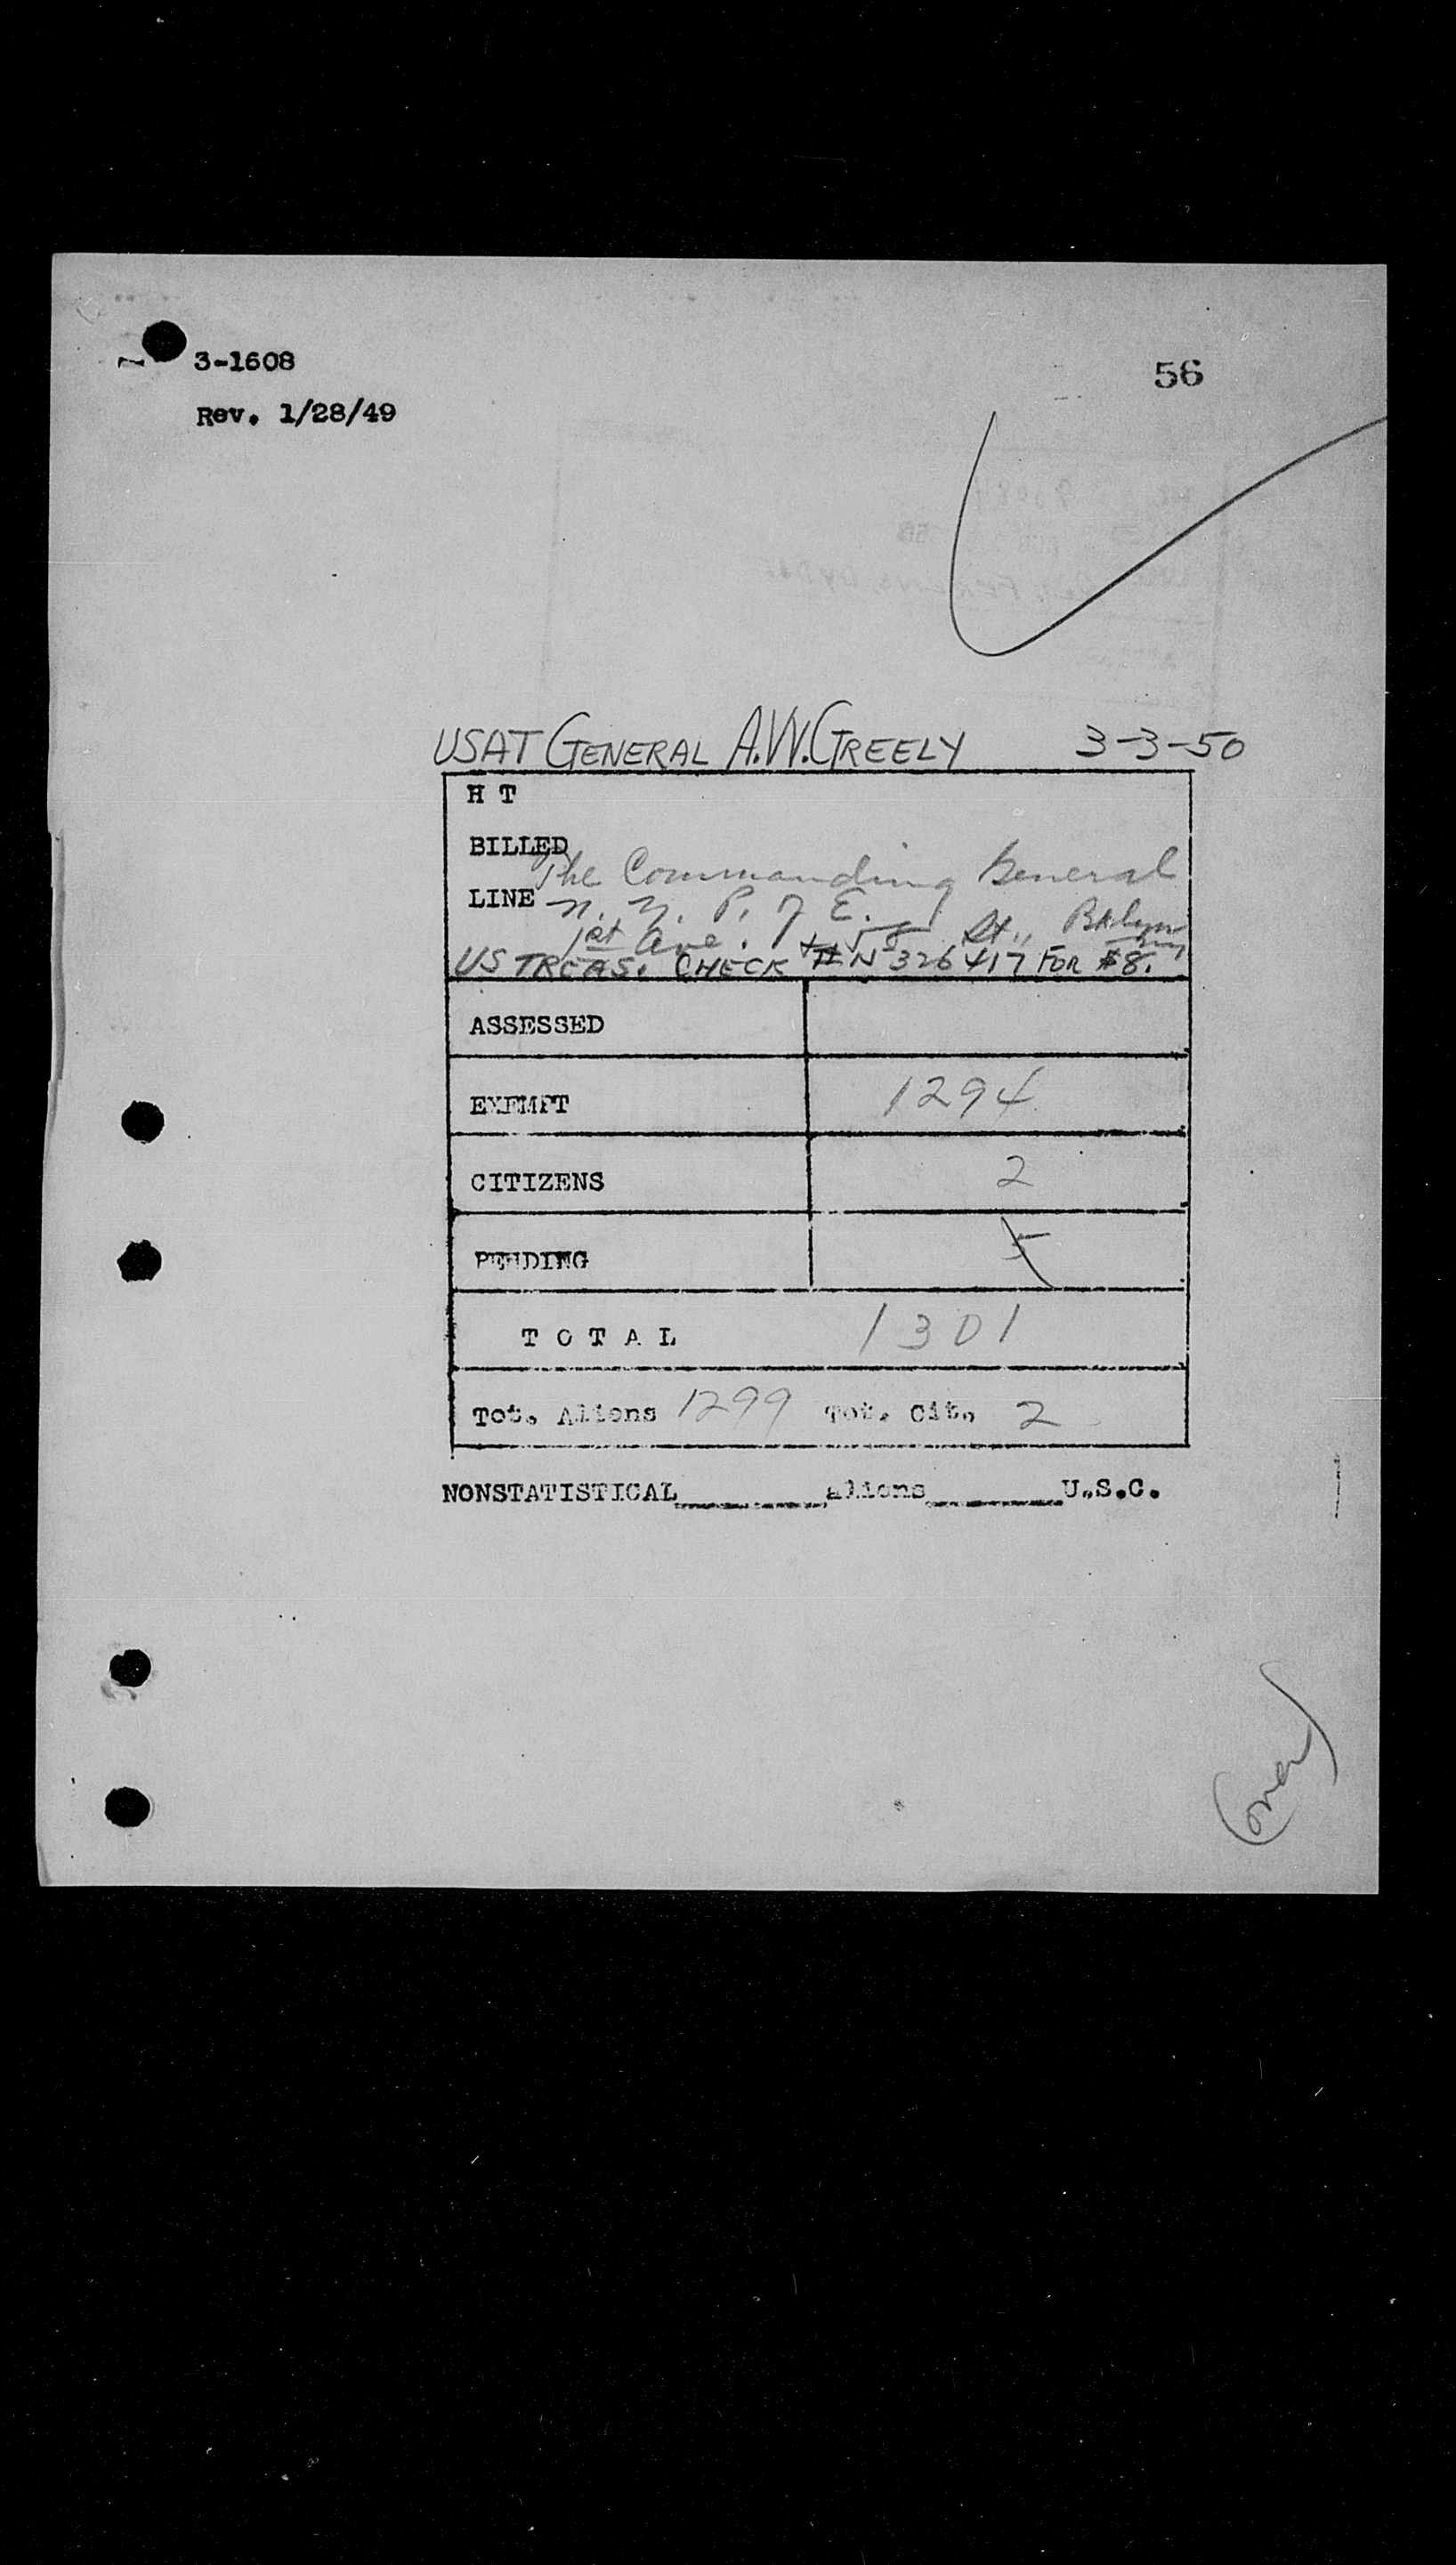 3-1608
56
Rev. 1/28/49
USAT GENERAL A.W. GREELY 3-3-50
H T
BILLED
The Commanding General
LINE N. Y. P. of E.
1st Ave. + 58 St., Bklyn
US TREAS. CHECK # N 326417 FOR $8.
ASSESSED
EXEMPT 1294
CITIZENS 2
PENDING 5
TOTAL 1301
Tot. Aliens 1299 Tot. Cit. 2
NONSTATISTICAL aliens U.S.C.
(over)